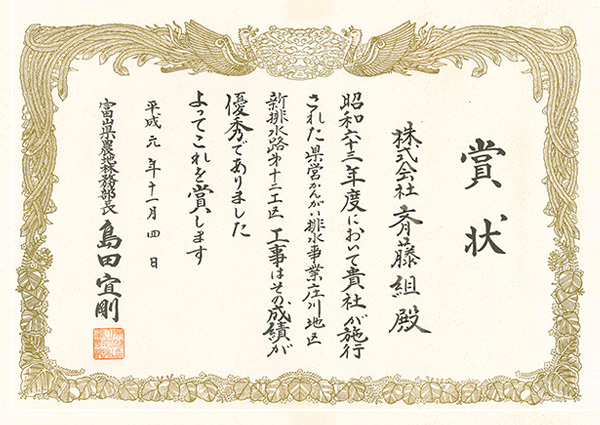 賞状
株式会社 斉藤組 殿
昭和六十三年度において貴社が施行
された県営かんがい排水事業庄川地区
新排水路第十二工区 工事はその成績が
優秀でありました
よってこれを賞します
平成元年十一月四日
富山県農地林務部長 島田宜剛